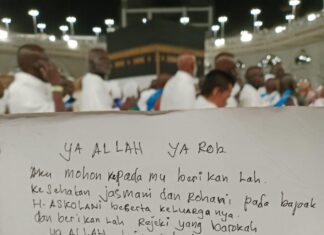 YA ALLAH YA ROB
Aku mohon kepada mu berikan Lah
Kesehatan jasmani dan Rohani pada bapak
H. ASKOLANI beserta keluarga nya.
dan berikan Lah Rejeki yang barokah
ya ALLAH